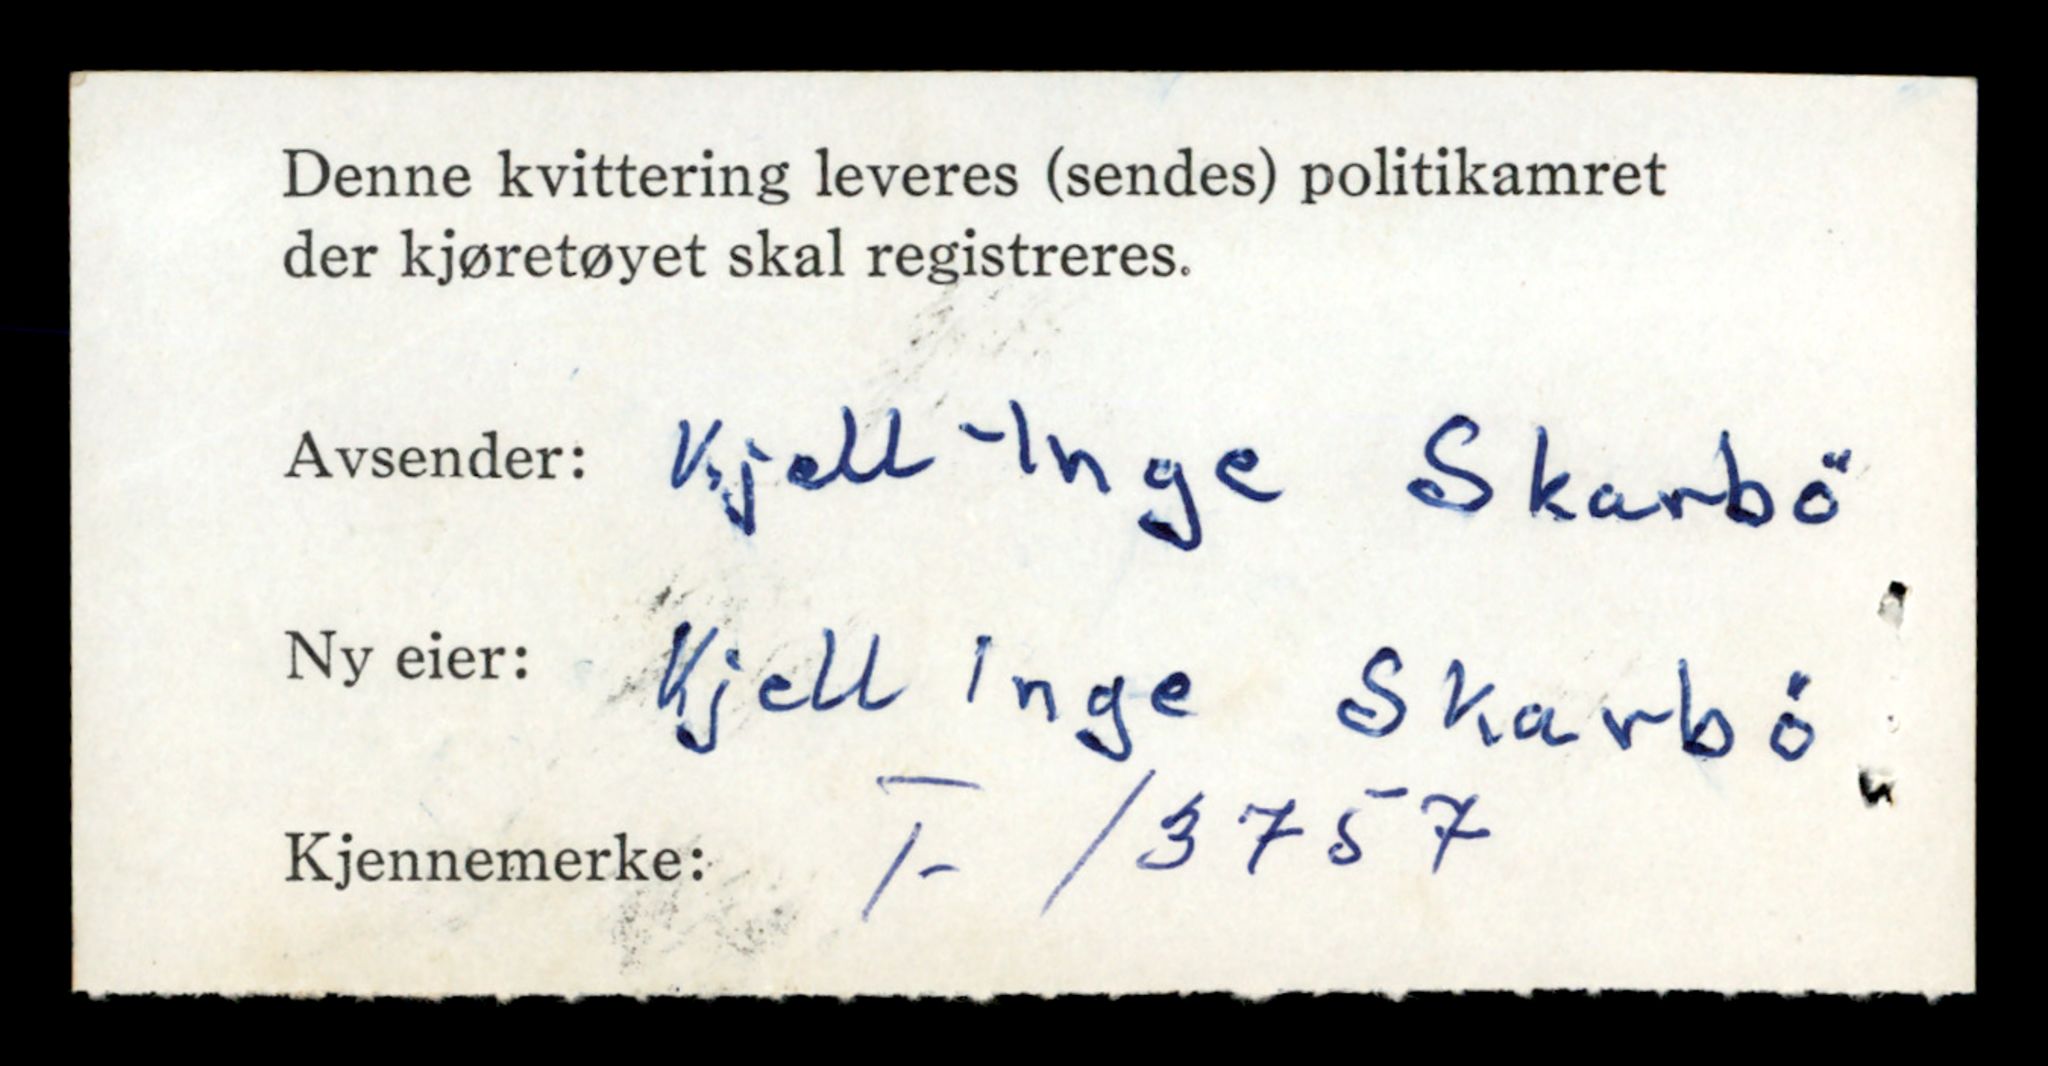 Denne kvittering leveres (sendes) politikamret
der kjøretøyet skal registreres.
Avsender: Kjell-Inge Skarbö
Ny eier: Kjell Inge Skarbö
Kjennemerke: T- 13757